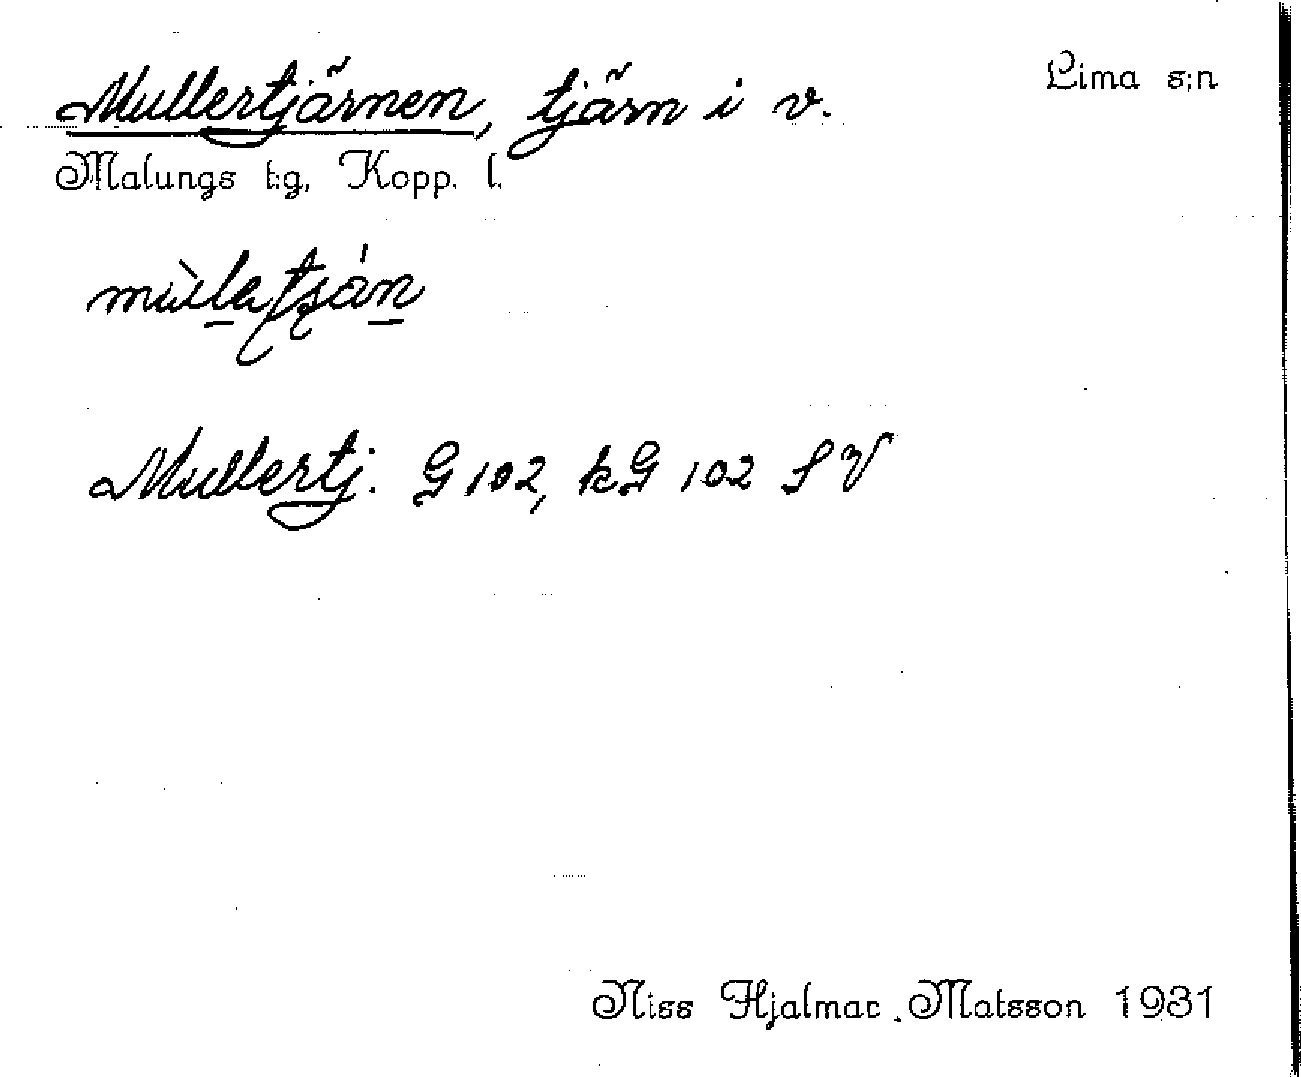 Mullertjärnen, tjärn i v. Lima s:n
Malungs t:g, Kopp. l.
mùlatʂán
Mullertj. G 102, kG 102 SV
Niss Hjalmar Matsson 1931